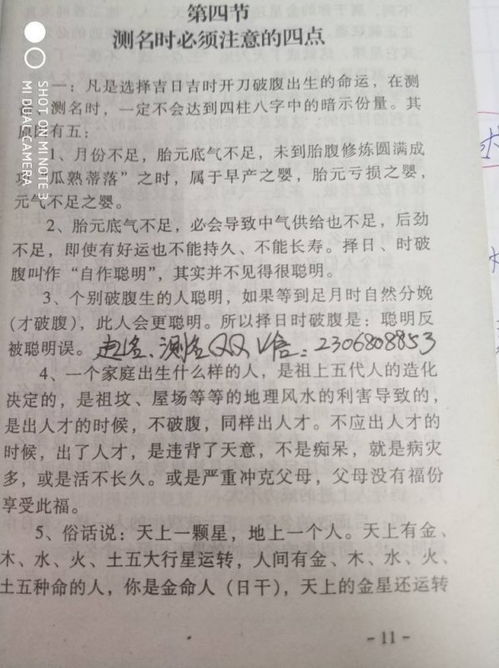 第四节
测名时必须注意的四点
一:凡是选择吉日吉时开刀破腹出生的命运,在测
测名时,一定不会达到四柱八字中的暗示份量。其
原因有五:
1、月份不足,胎元底气不足,未到胎腹修炼圆满成
“瓜熟蒂落”之时,属于早产之婴,胎元亏损之婴,
元气不足之婴。
2、胎元底气不足,必会导致中气供给也不足,后劲
不足,即使有好运也不能持久、不能长寿。择日、时破
腹叫作“自作聪明”,其实并不见得很聪明。
3、个别破腹生的人聪明,如果等到足月时自然分娩
(才破腹),此人会更聪明。所以择日时破腹是:聪明反
被聪明误。
起名、测名QQ V信:2306808853
4、一个家庭出生什么样的人,是祖上五代人的造化
决定的,是祖坟、屋场等等的地理风水的利害导致的,
是出人才的时候,不破腹,同样出人才。不应出人才的
时候,出了人才,是违背了天意,不是痴呆,就是病灾
多,或是活不长久。或是严重冲克父母,父母没有福份
享受此福。
5、俗话说:天上一颗星,地上一个人。天上有金、
木、水、火、土五大行星运转,人间有金、木、水、火、
土五种命的人,你是金命人(日干),天上的金星还运转
-11-
SHOT ON MI NOTE 3
MI DUAL CAMERA